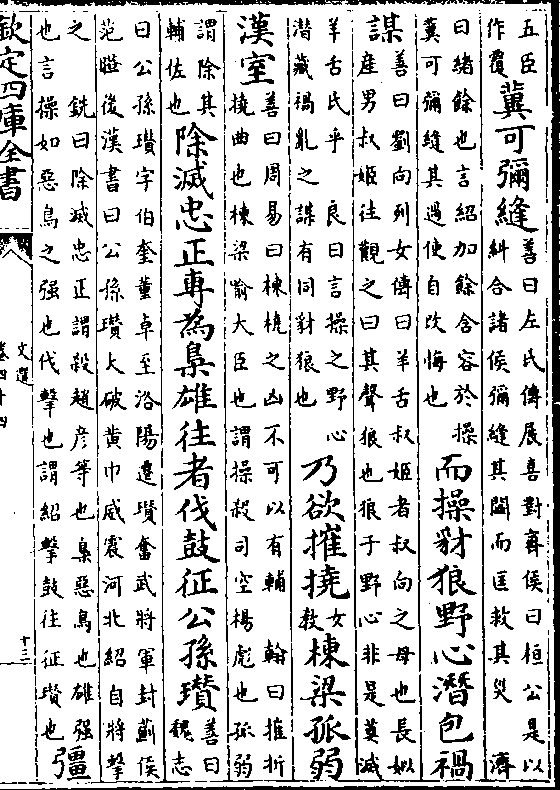 五臣作覆冀可彌縫善曰左氏傳展喜對齊侯曰桓公是以糾合諸侯彌縫其闕而匡救其災　濟
曰緒餘也言紹加餘含容於操冀可彌縫其過使自改悔也而操豺狼野心潛包禍
謀善曰劉向列女傳曰羊舌叔姬者叔向之母也長姒產男叔姬往觀之曰其聲狼也狼子野心非是莫滅
羊舌氏乎　良曰言操之野心潛藏禍亂之謀有同豺狼也乃欲摧撓女教棟梁孤弱
漢室善曰周易曰棟橈之凶不可以有輔　翰曰摧折撓曲也棟梁喻大臣也謂操殺司空楊彪也孤弱
謂除其輔佐也除滅忠正專為梟雄往者伐鼓征公孫瓚善曰魏志
曰公孫瓚字伯奎董卓至洛陽遷瓚奮武將軍封薊侯范曄後漢書曰公孫瓚大破黃巾威震河北紹自將擊
之　銑曰除滅忠正謂殺趙彥等也梟惡鳥也雄强也言操如惡鳥之强也伐擊也謂紹擊鼓往征瓚也彊
欽定四庫全書
文選
卷四十四
十三